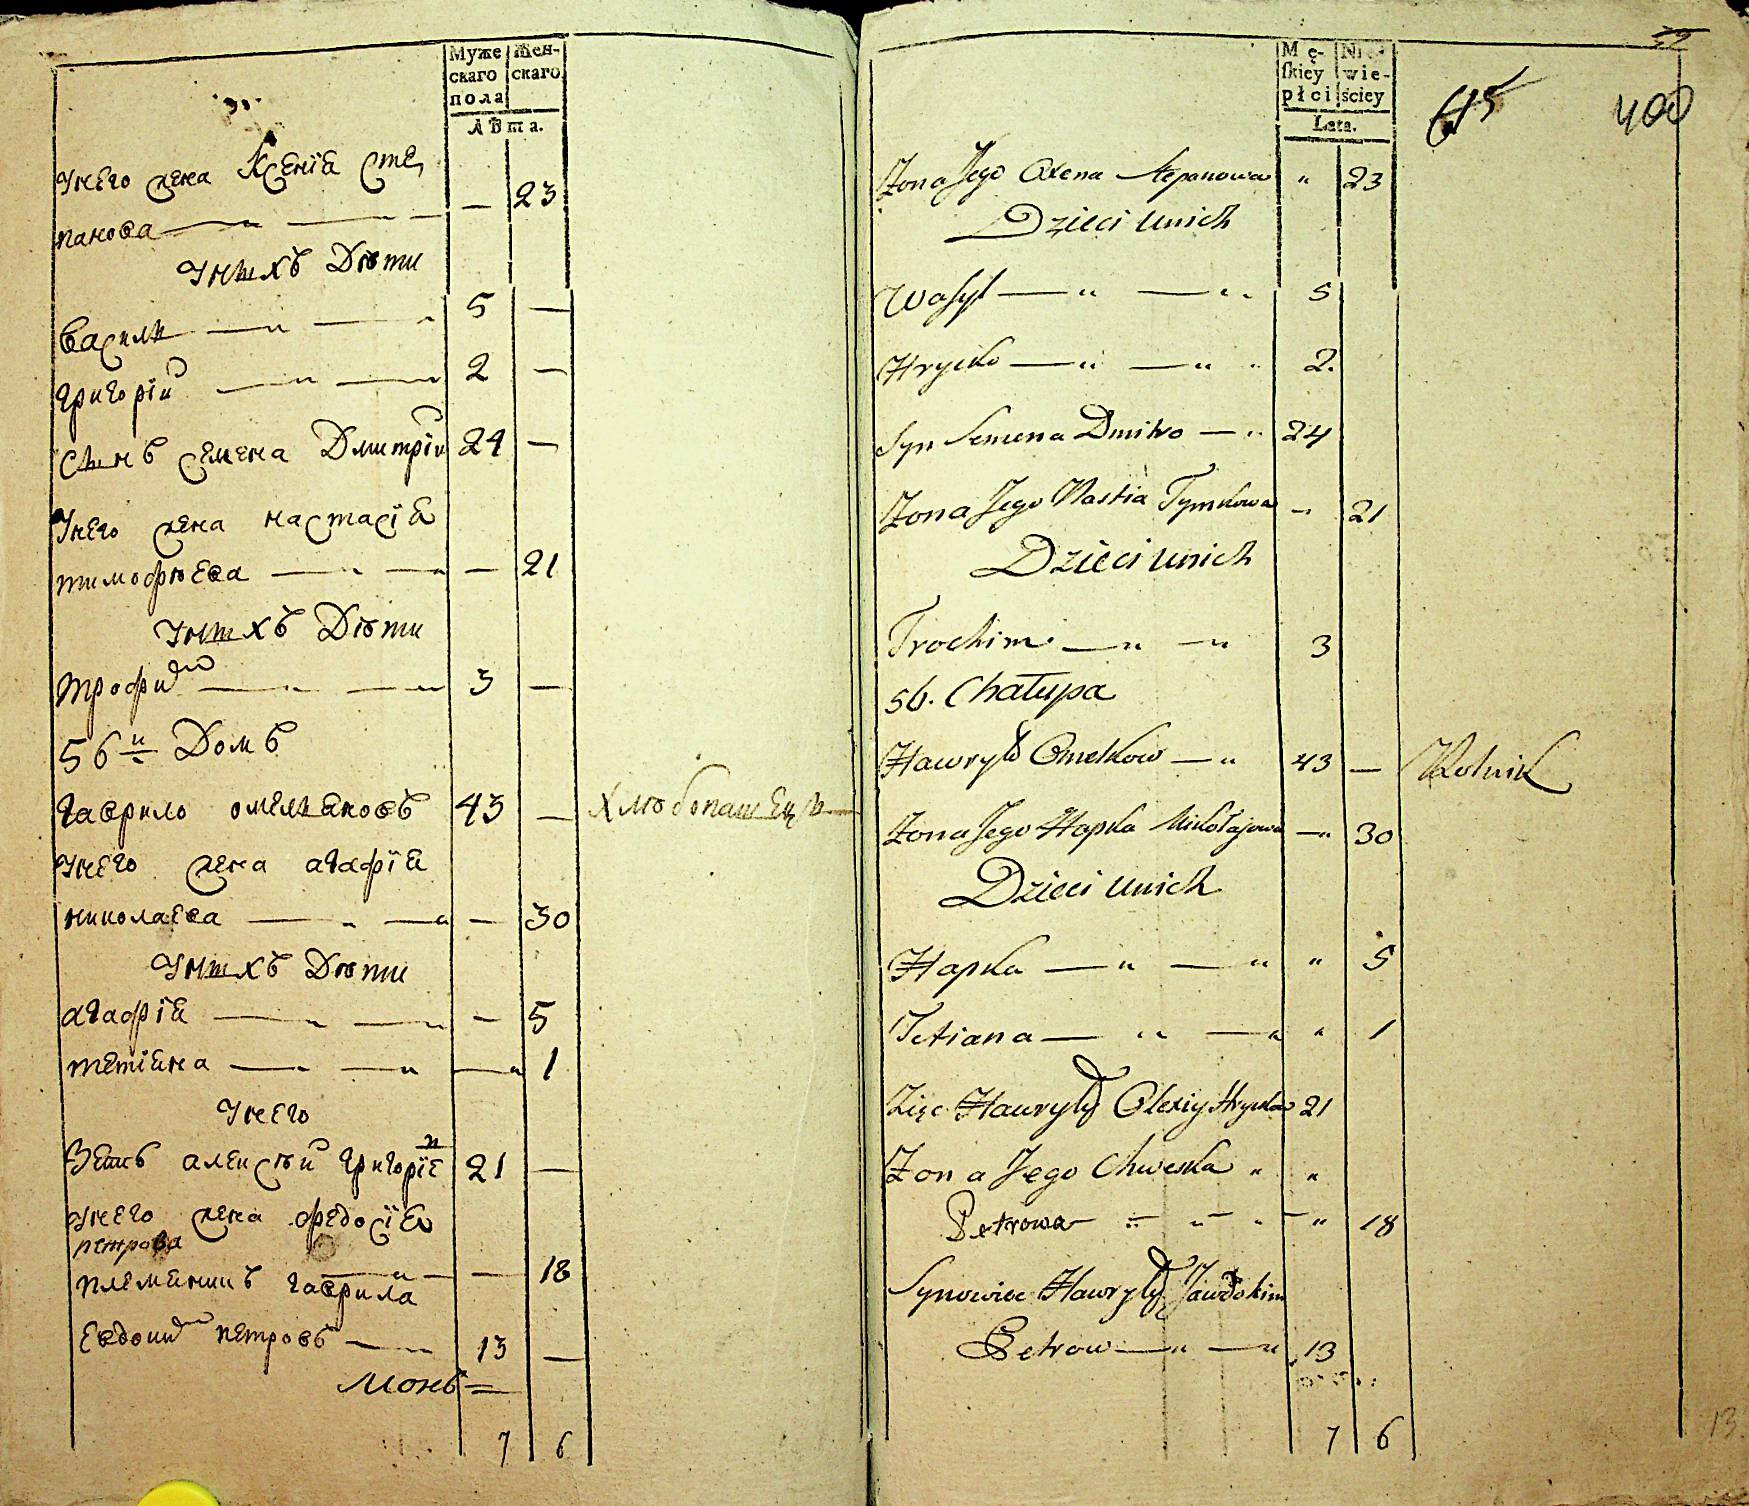 Муже Жен-
скаго скаго
пола
лѣта.
Унего жена Ксенїя Сте
панова — — 23
Унихъ Дѣти
Василь — — 5 —
Григорїй — — 2 —
Сынъ семена Дмитрїй 24 —
Унего жена настасїя
тимофѣева — — — 21
Унихъ Дѣти
трофим — — 3 —
56й Домъ
Гаврило омеляновъ 43 — Хлѣбопашецъ
Унего жена агафїя
николаева — — — 30
Унихъ Дѣти
агафїя — — — 5
тетїяна — — — 1
Унего
Зять алексѣй григорїе 21 —
Унего жена федосїя
петрова — — 18
племяникъ гаврила
Евдоким петровъ — 13 —
7 6
Mę- Nie
skiey wie-
płci ściey
Lata.
615 400
Zona Jego Oxena Stepanowa " 23
Dzieci unich
Wasyl — " — " 5
Hrycko — " — " 2.
Syn Semena Dmitro — " 24
Zona Jego Nastia Tymkowa — 21
Dzieci unich
Trochim — " — " 3
56. Chałupa
Hawryło Omelkow — " 43 — Rolnik
Zona Jego Hapka Mikołajowa — " 30
Dzieci unich
Hapka — " — " " 5
Tetiana — " — " " 1
Zięc Hawryły Olexiy Hryckow 21
Zona Jego Chweska " "
Petrowa — " — " — " 18
Synowiec Hawryły Jawdokim
Petrow — " — " 13
7 6
13